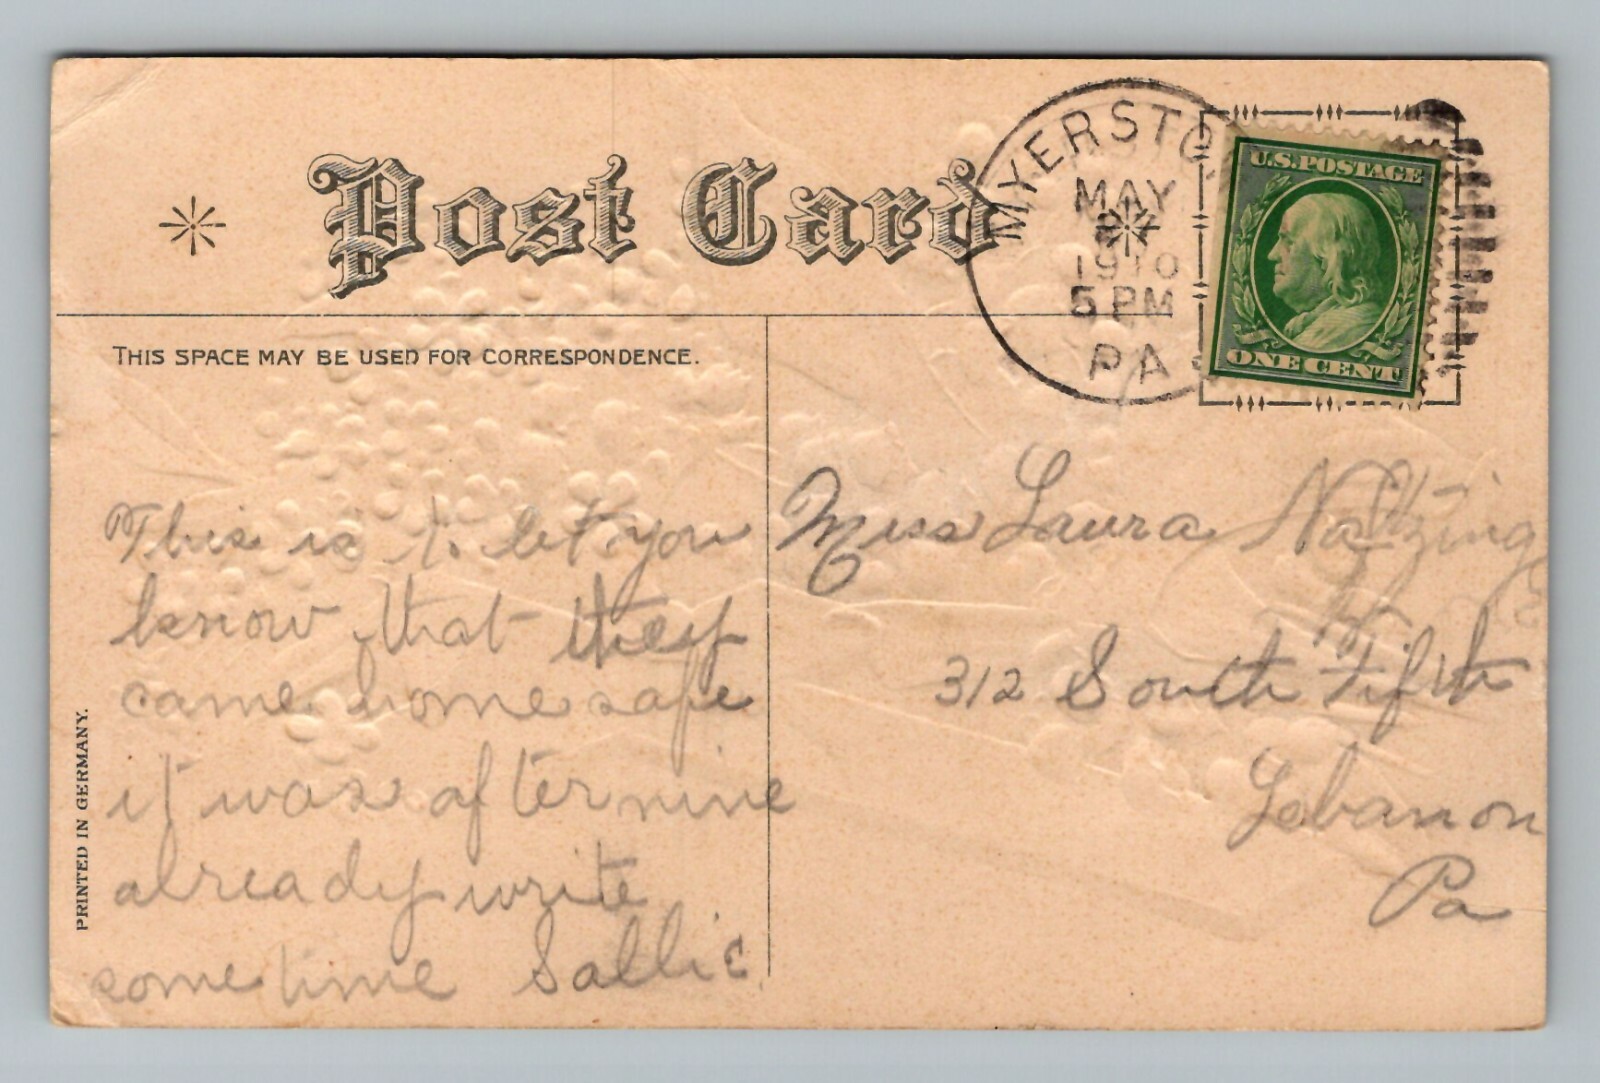 Post Card
MYERSTO
MAY
1910
5 PM
PA
U.S. POSTAGE
ONE CENT
THIS SPACE MAY BE USED FOR CORRESPONDENCE.
This is to let you
know that they
came home safe
it was after nine
already write
some time Sallie
Miss Laura
312 South Fifth
Lebanon
Pa
PRINTED IN GERMANY.